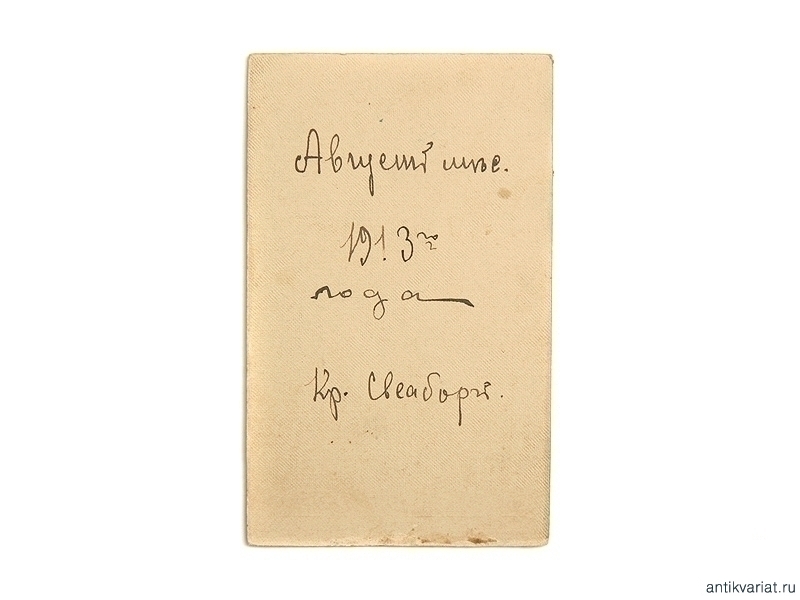 Августъ мѣс.
1913го
года
Кр. Свеаборгъ.
antikvariat.ru